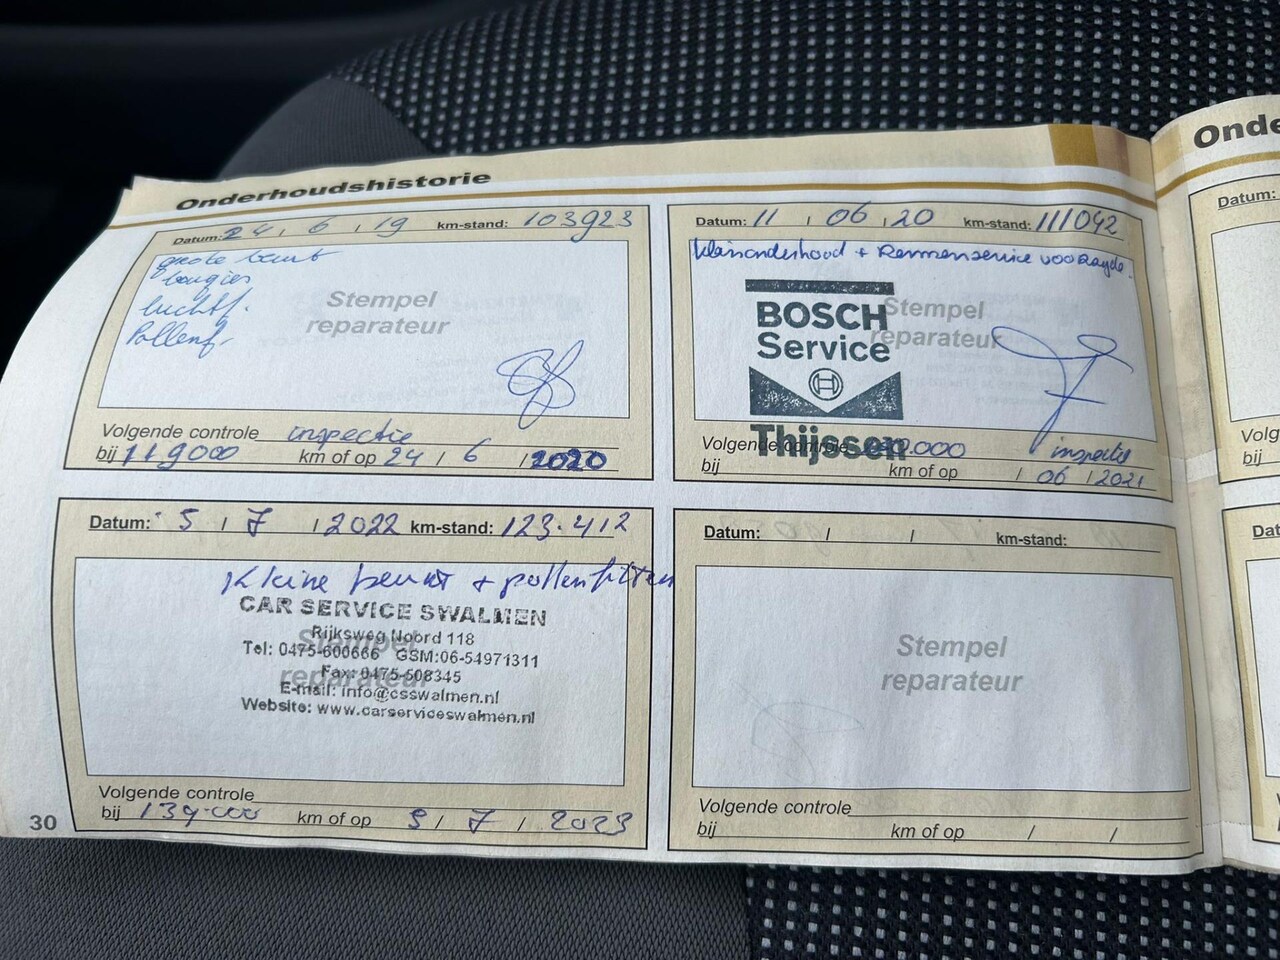 Onderhoudshistorie
Datum: 24 / 6 / 19 km-stand: 103923
grote beurt
bougies
luchtf.
Pollenf.
Stempel
reparateur
Volgende controle inspectie
bij 119000 km of op 24 / 6 / 2020
Datum: 11 / 06 / 20 km-stand: 111042
Kleinonderhoud + Remmenservice voor
Stempel
reparateur
BOSCH
Service
Thijssen
Volgende controle inspectie
bij km of op / 06 / 2021
Datum: 5 / 7 / 2022 km-stand: 123.412
Kleine beurt + pollenfilter
Stempel
reparateur
CAR SERVICE SWALMEN
Rijksweg Noord 118
Tel: 0475-600666 GSM:06-54971311
Fax: 0475-508345
E-mail: info@csswalmen.nl
Website: www.carserviceswalmen.nl
Volgende controle
bij 139.000 km of op 5 / 7 / 2023
Datum: / / km-stand:
Stempel
reparateur
Volgende controle
bij km of op / /
30
Onde
Datum:
Volg
bij
Dat